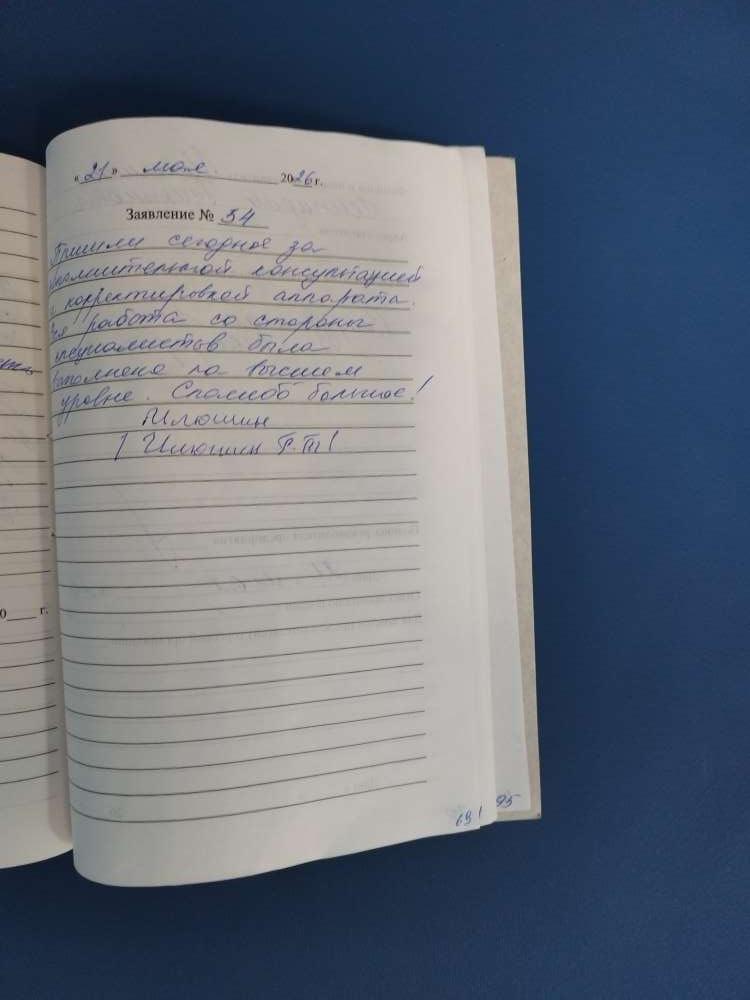 « 21 » мая 2026 г.
Заявление № 54
Пришли сегодня за
дополнительной консультацией
и корректировкой аппарата.
Вся работа со стороны
специалистов была
выполнена на высшем
уровне. Спасибо большое!
Илюшин
/ Илюшин Г.Т /
0 г.
69
95